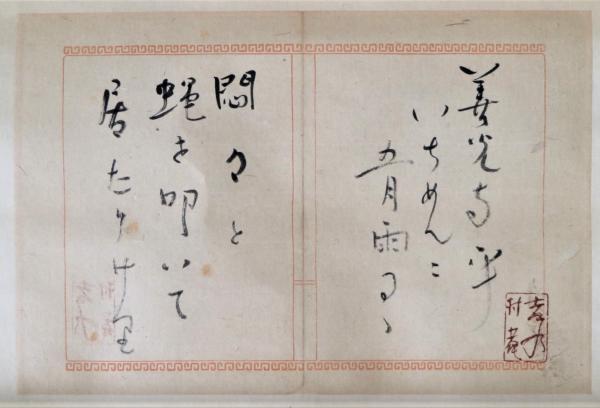 善光寺平
いちめんに
五月雨るゝ
悶々と
蠅を叩いて
居たりけり